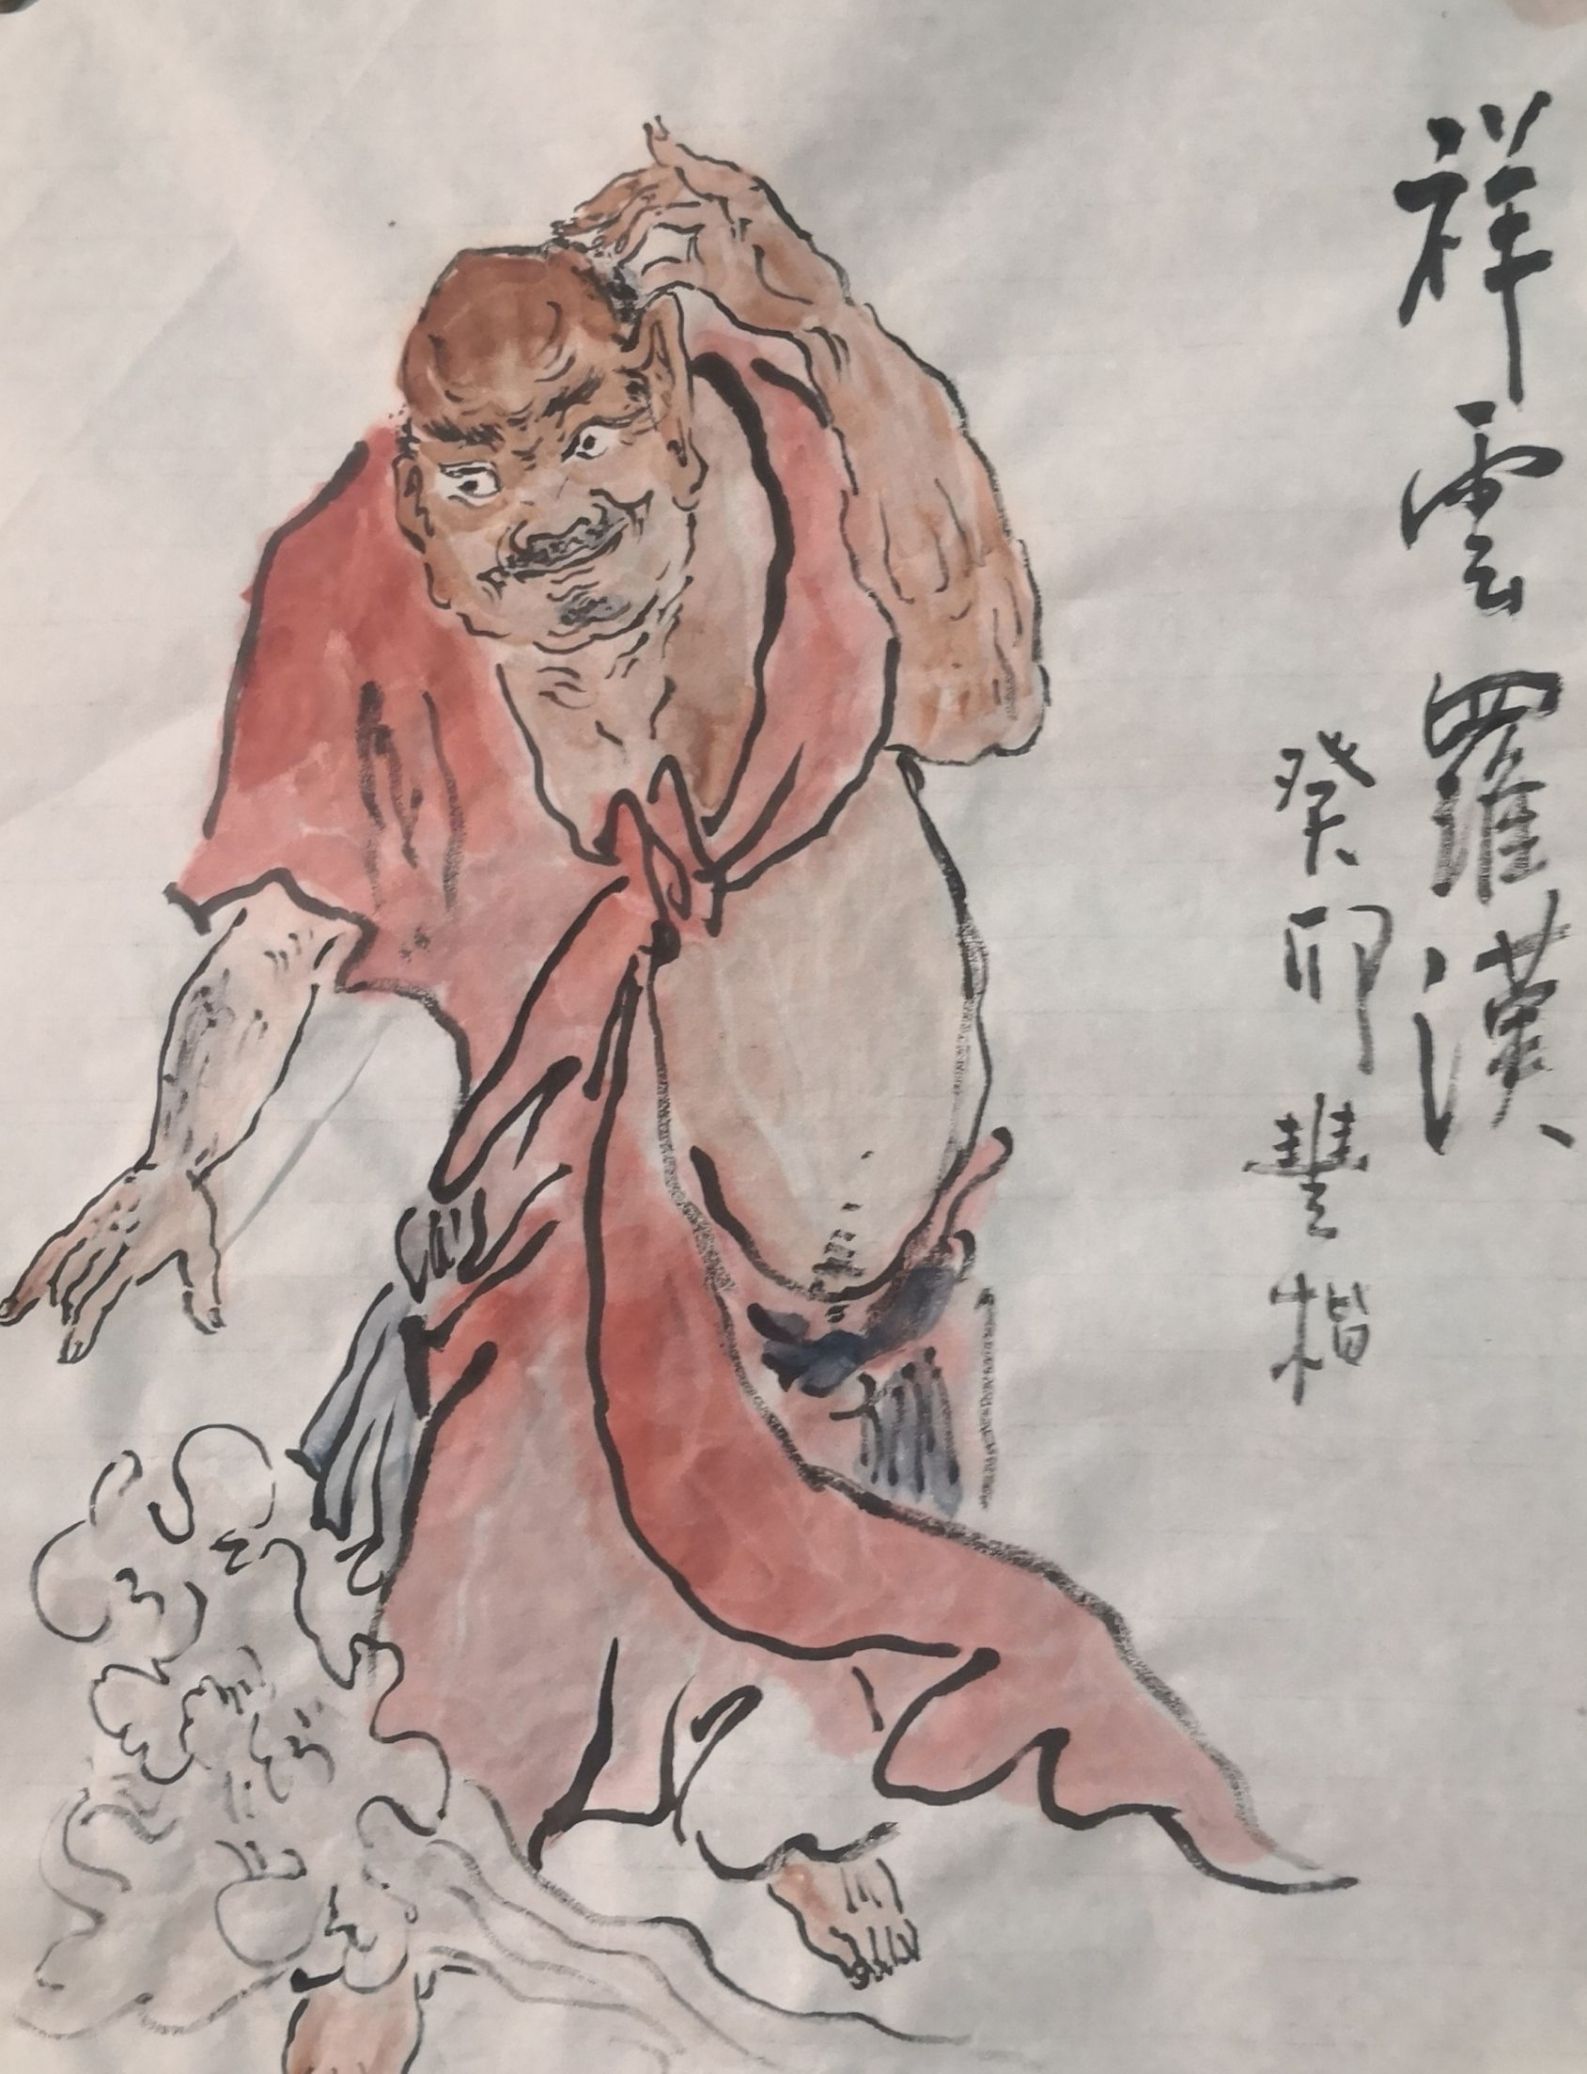 祥雲羅漢
癸卯豐楷